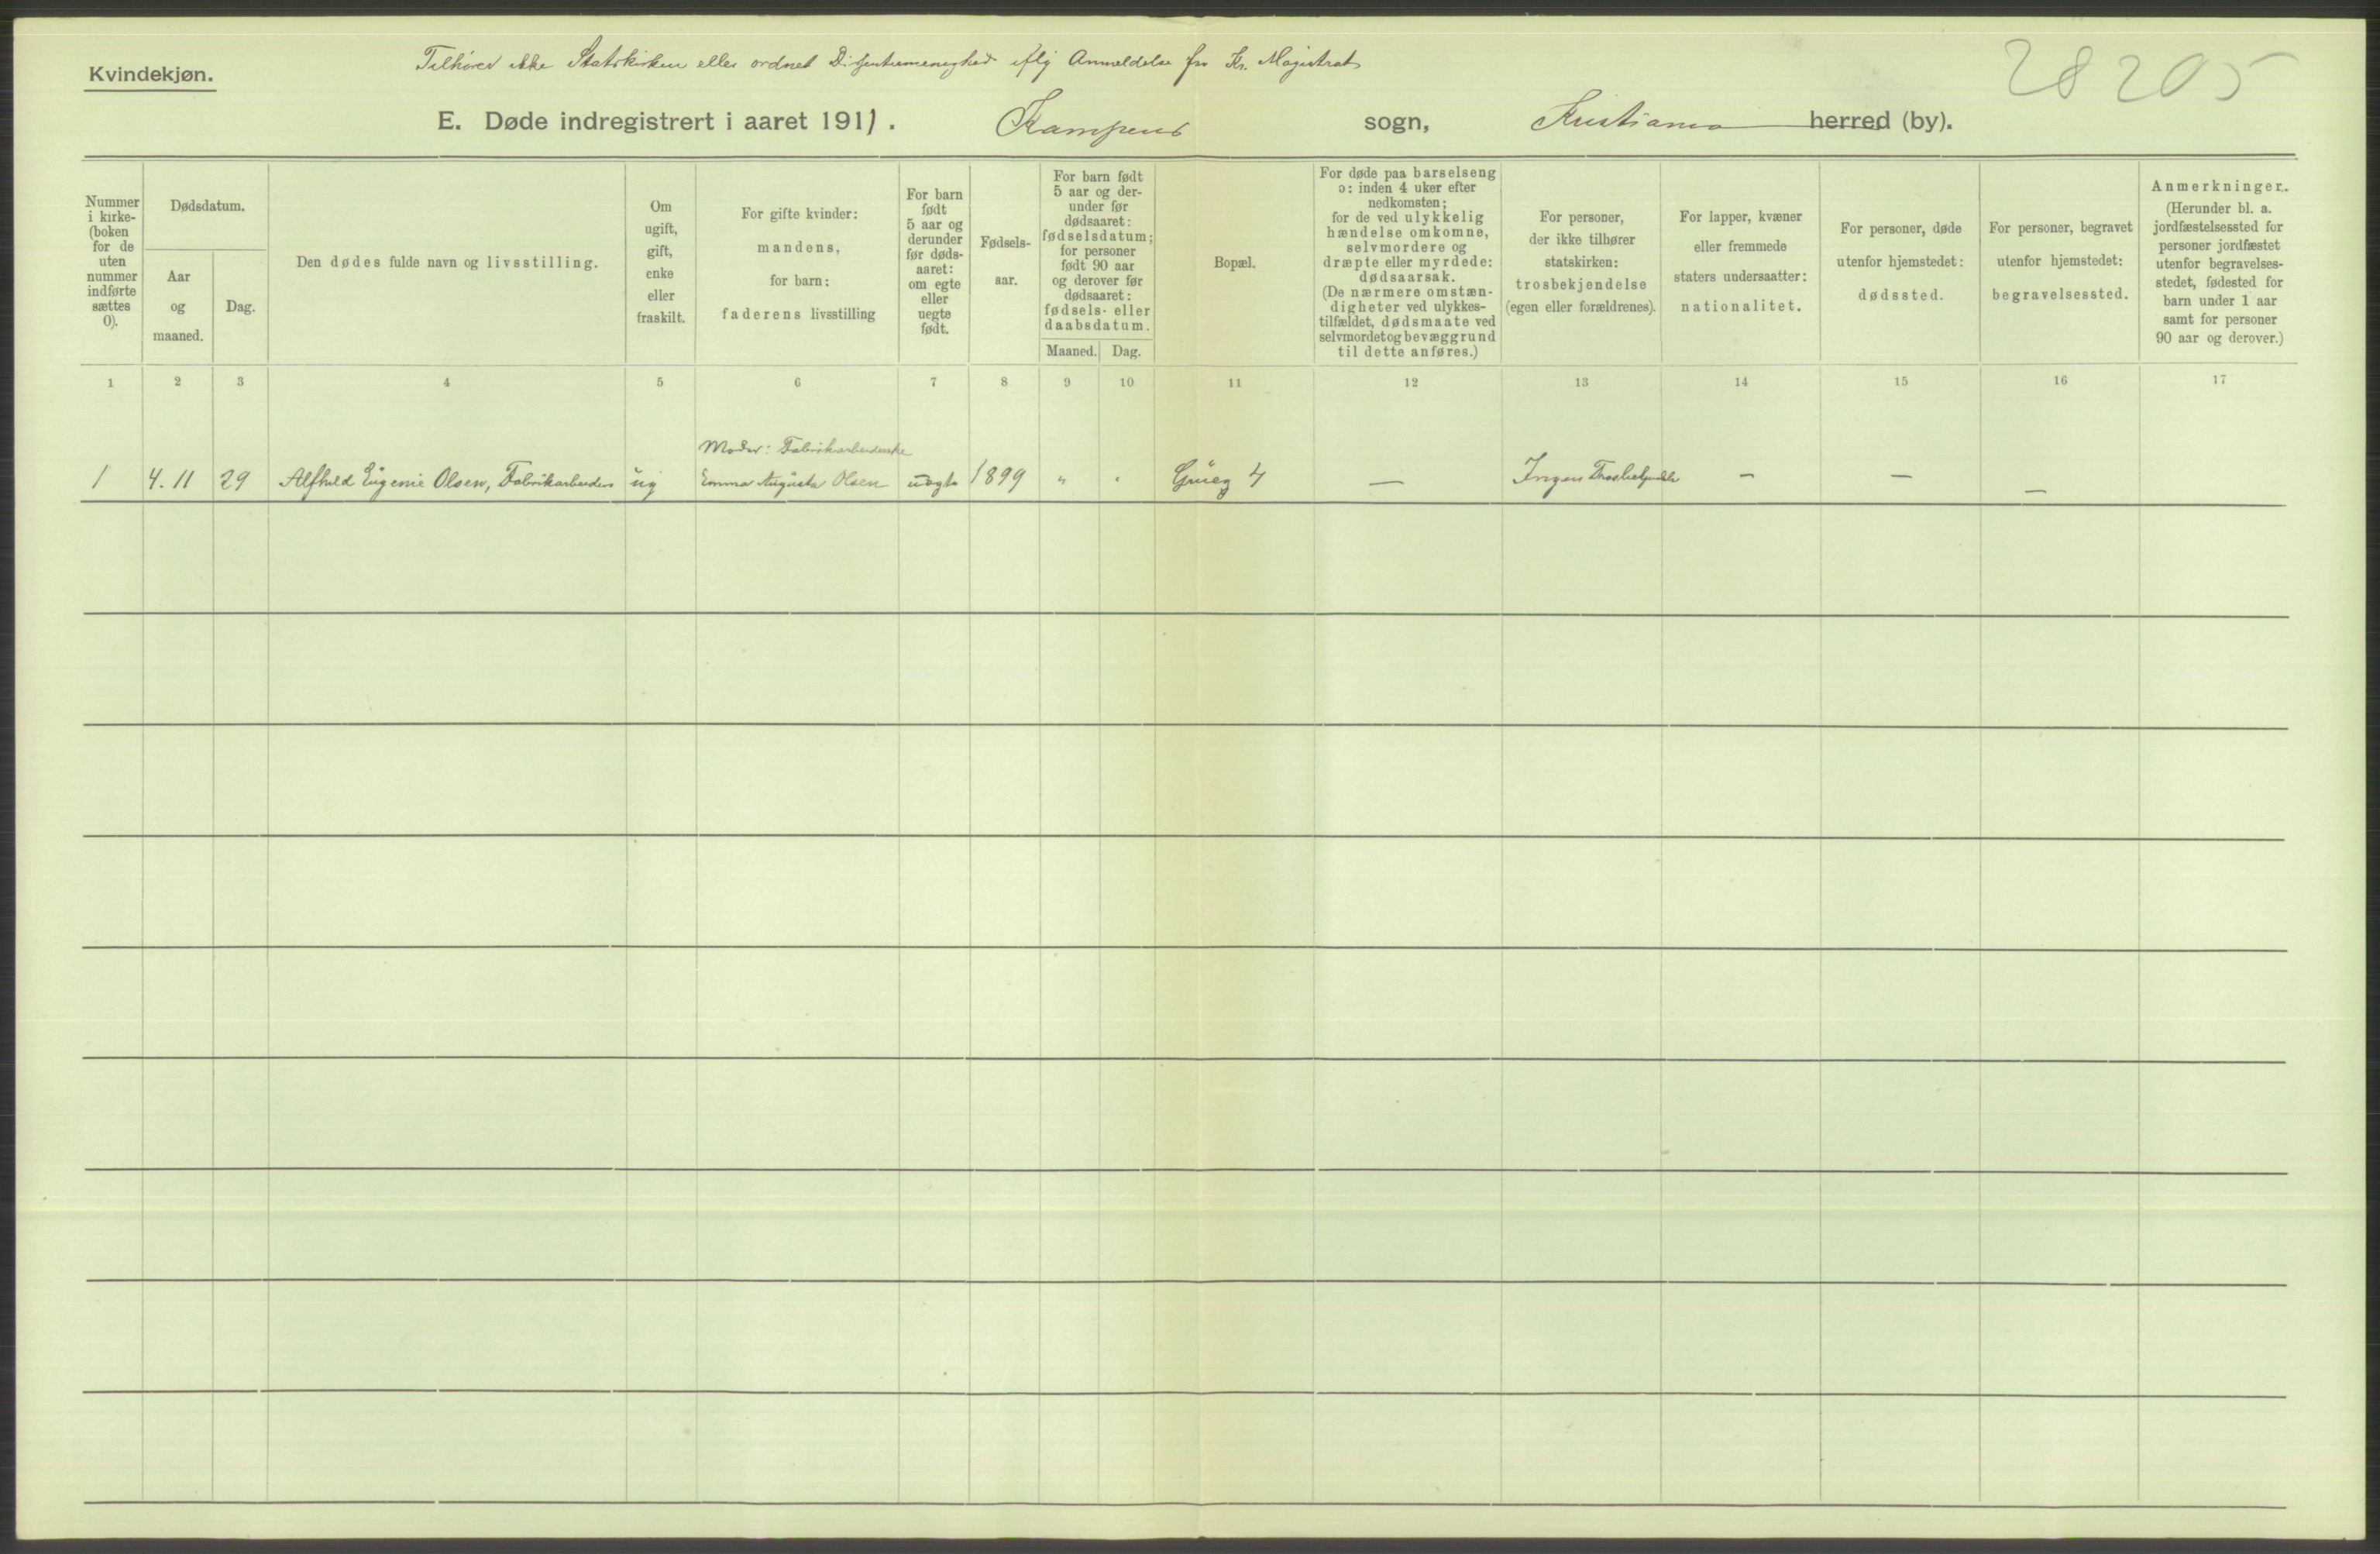 Kvindekjøn.
Tilhører ikke Statskirken eller ordnet Dissentermenighed iflg Anmeldelse fra Kr. Magistrat
28205
E. Døde indregistrert i aaret 1911. Kampens sogn, Kristiania herred (by).
Nummer
i kirke-
(boken
for de
uten
nummer
indførte
sættes
0).
Dødsdatum.
Aar
og
maaned.
Dag.
Den dødes fulde navn og livsstilling.
Om
ugift,
gift,
enke
eller
fraskilt.
For gifte kvinder:
mandens,
for barn:
faderens livsstilling
For barn
født
5 aar og
derunder
før døds-
aaret:
om egte
eller
uegte
født.
Fødsels-
aar.
For barn født
5 aar og der-
under før
dødsaaret:
fødselsdatum;
for personer
født 90 aar
og derover før
dødsaaret:
fødsels- eller
daabsdatum.
Maaned. Dag.
Bopæl.
For døde paa barselseng
ɔ: inden 4 uker efter
nedkomsten;
for de ved ulykkelig
hændelse omkomne,
selvmordere og
dræpte eller myrdede:
dødsaarsak.
(De nærmere omstæn-
digheter ved ulykkes-
tilfældet, dødsmaate ved
selvmordet og bevæggrund
til dette anføres.)
For personer,
der ikke tilhører
statskirken:
trosbekjendelse
(egen eller forældrenes).
For lapper, kvæner
eller fremmede
staters undersaatter:
nationalitet.
For personer, døde
utenfor hjemstedet:
dødssted.
For personer, begravet
utenfor hjemstedet:
begravelsessted.
Anmerkninger.
(Herunder bl. a.
jordfæstelsessted for
personer jordfæstet
utenfor begravelses-
stedet, fødested for
barn under 1 aar
samt for personer
90 aar og derover.)
1 2 3 4 5 6 7 8 9 10 11 12 13 14 15 16 17
Moder: Fabrikarbeiderske
1 4.11 29 Alfhild Eugenie Olsen, Fabrikarbeiders ug Emma Augusta Olsen uegte 1899 " " Grüeg 4 — Ingen Trosbekjendelse — — —